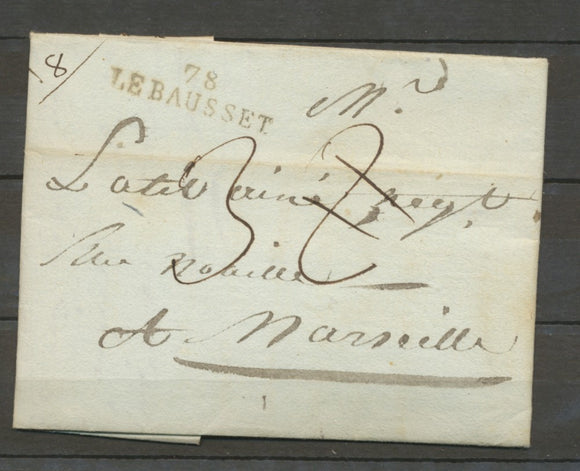 8
78
LE BAUSSET
Mr
ainé negt.
Rue noaille
A Marseille